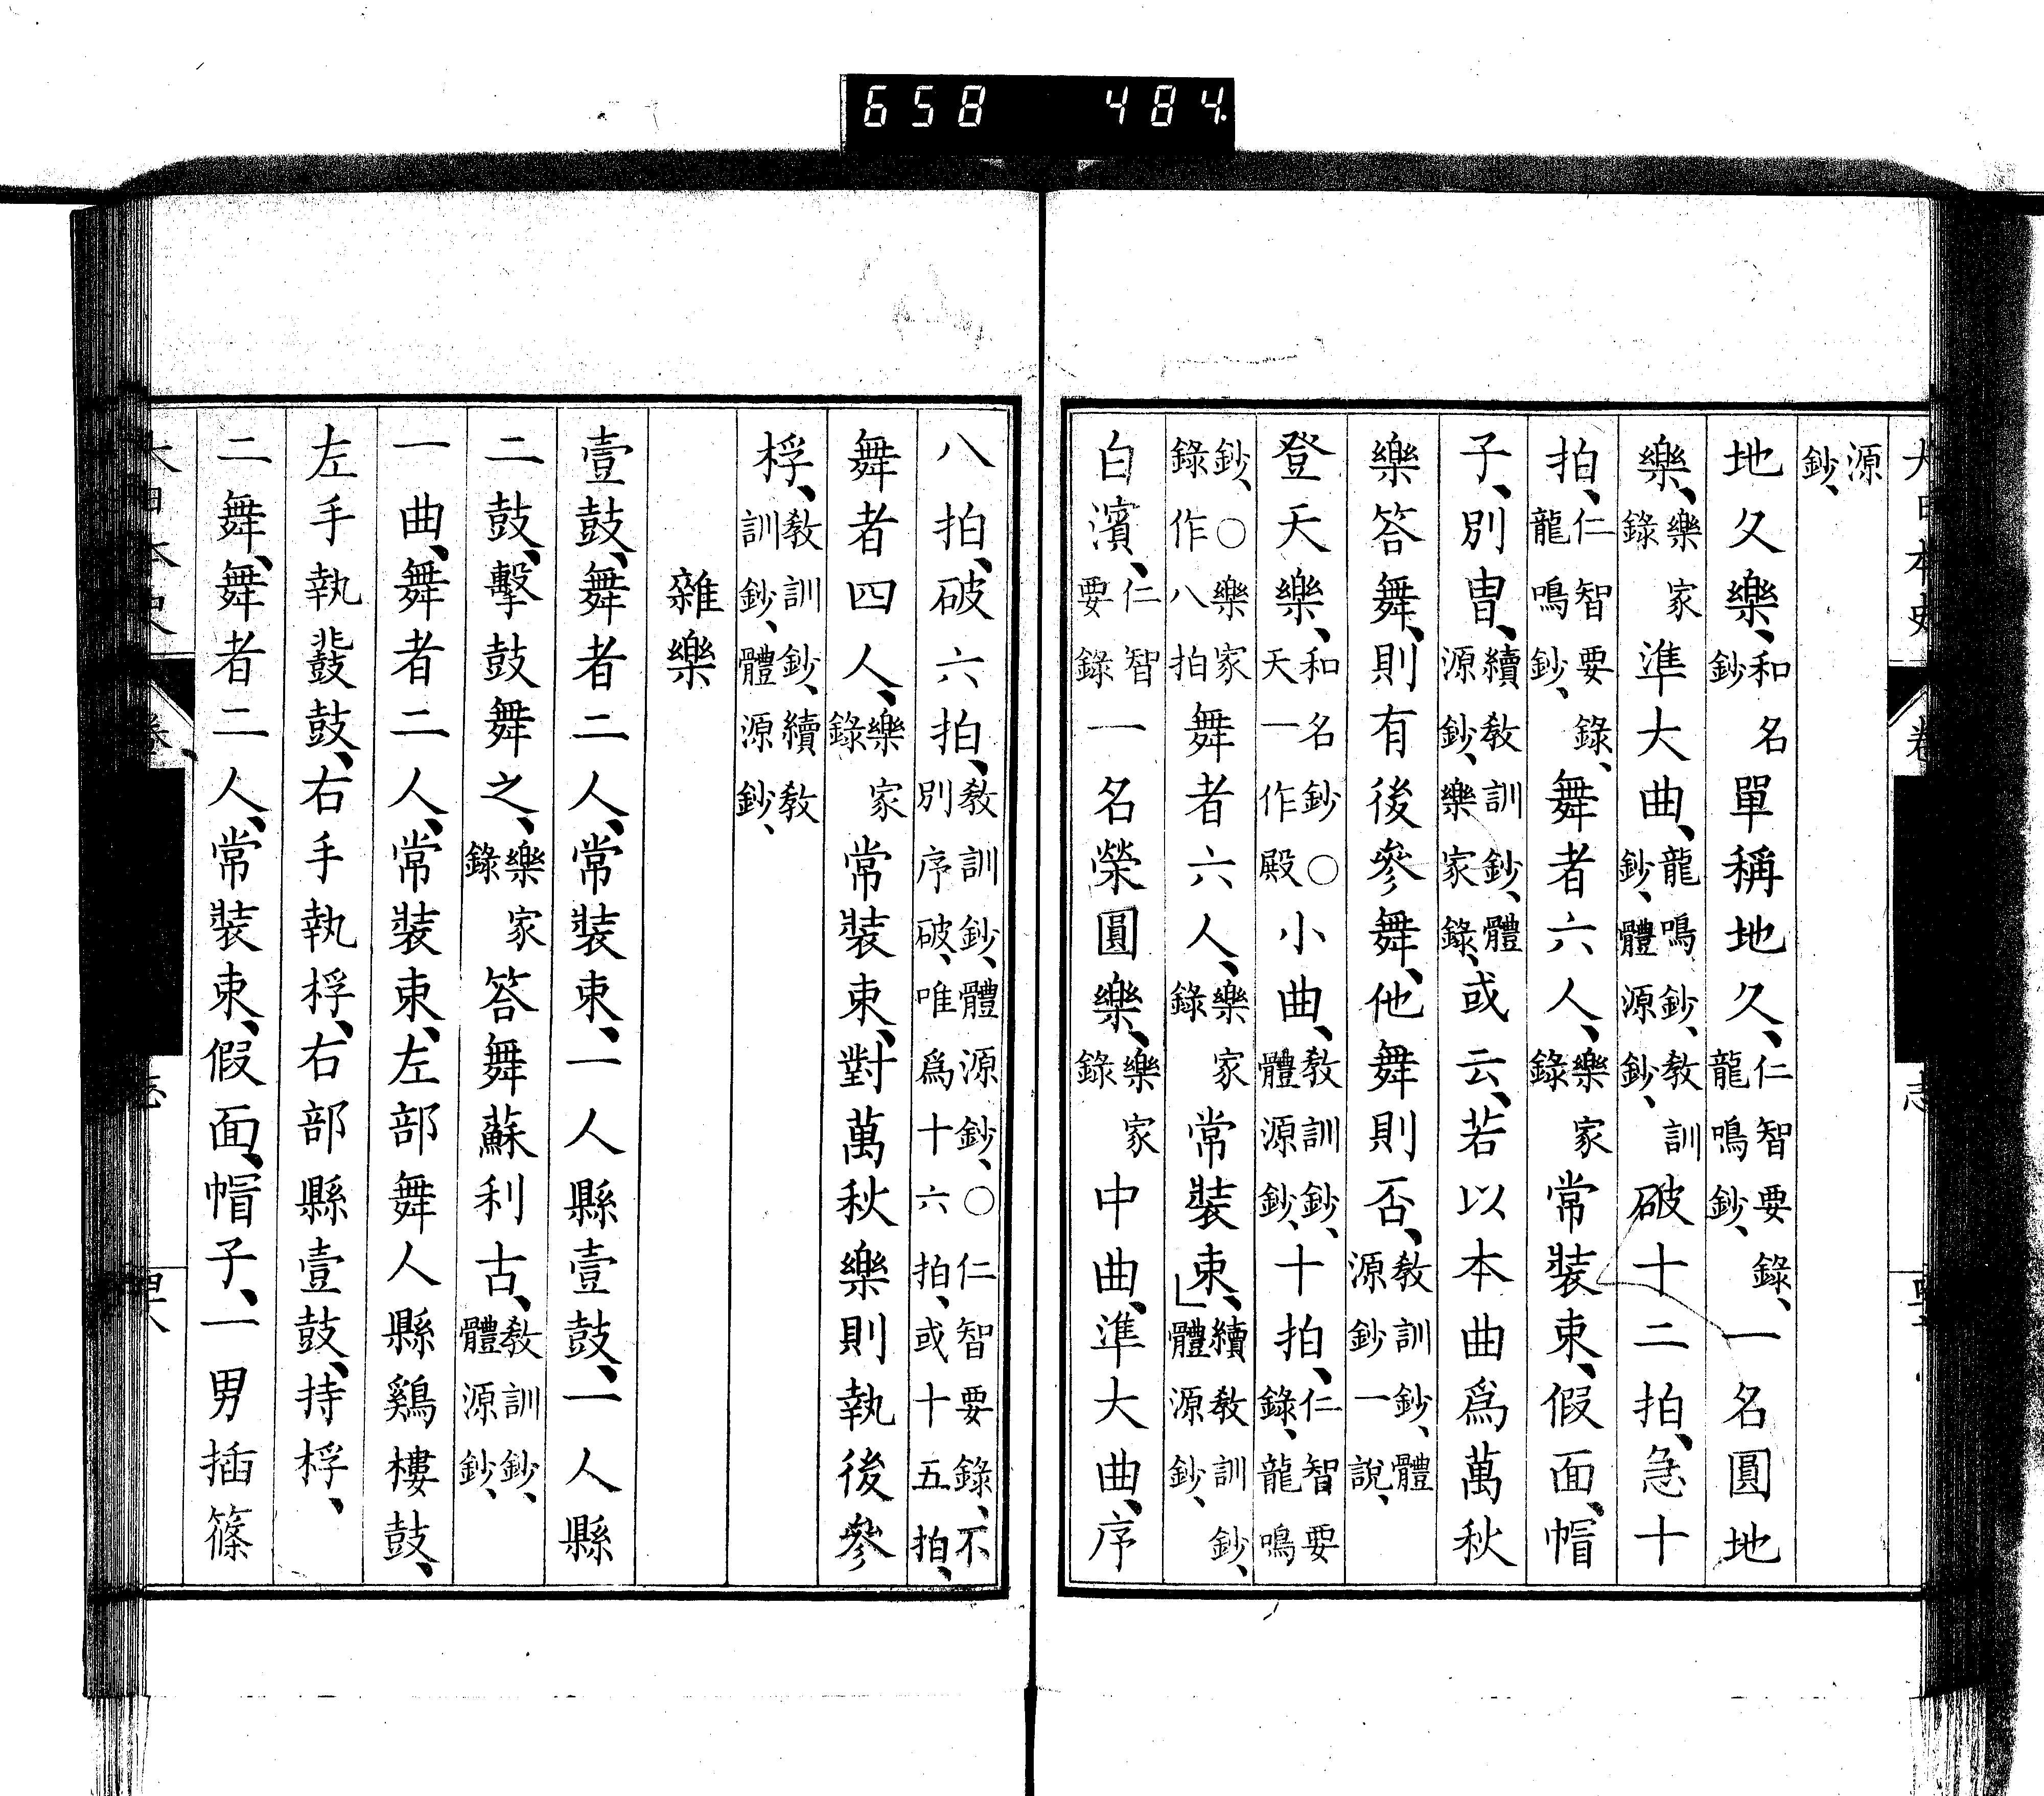 大日本史 卷 志
源鈔、
地久樂、和名鈔單稱地久、仁智要錄、龍鳴鈔、一名圓地
樂、樂家錄準大曲、龍鳴鈔、教訓鈔、體源鈔、破十二拍、急十
拍、仁智要錄、龍鳴鈔、舞者六人、樂家錄常裝束、假面、帽
子、別冑、續教訓鈔、體源鈔、樂家錄、或云、若以本曲爲萬秋
樂答舞、則有後參舞、他舞則否、教訓鈔、體源鈔一說、
登天樂、和名鈔○天一作殿小曲、教訓鈔、體源鈔、十拍、仁智要錄、龍鳴
鈔、○樂家錄作八拍舞者六人、樂家錄常裝束、續教訓鈔、體源鈔、
白濱、仁智要錄一名榮圓樂、樂家錄中曲、準大曲、序
八拍、破六拍、教訓鈔、體源鈔、○仁智要錄、不別序破、唯爲十六拍、或十五拍、
舞者四人、樂家錄常裝束、對萬秋樂則執後參
桴、教訓鈔、續教訓鈔、體源鈔、
雜樂
壹鼓、舞者二人、常裝束、一人縣壹鼓、一人縣
二鼓、擊鼓舞之、樂家錄答舞蘇利古、教訓鈔、體源鈔、
一曲、舞者二人、常裝束、左部舞人縣鷄樓鼓、
左手執鼗鼓、右手執桴、右部縣壹鼓、持桴、
二舞、舞者二人、常裝束、假面、帽子、一男插篠
大日本史 卷 志
658 484